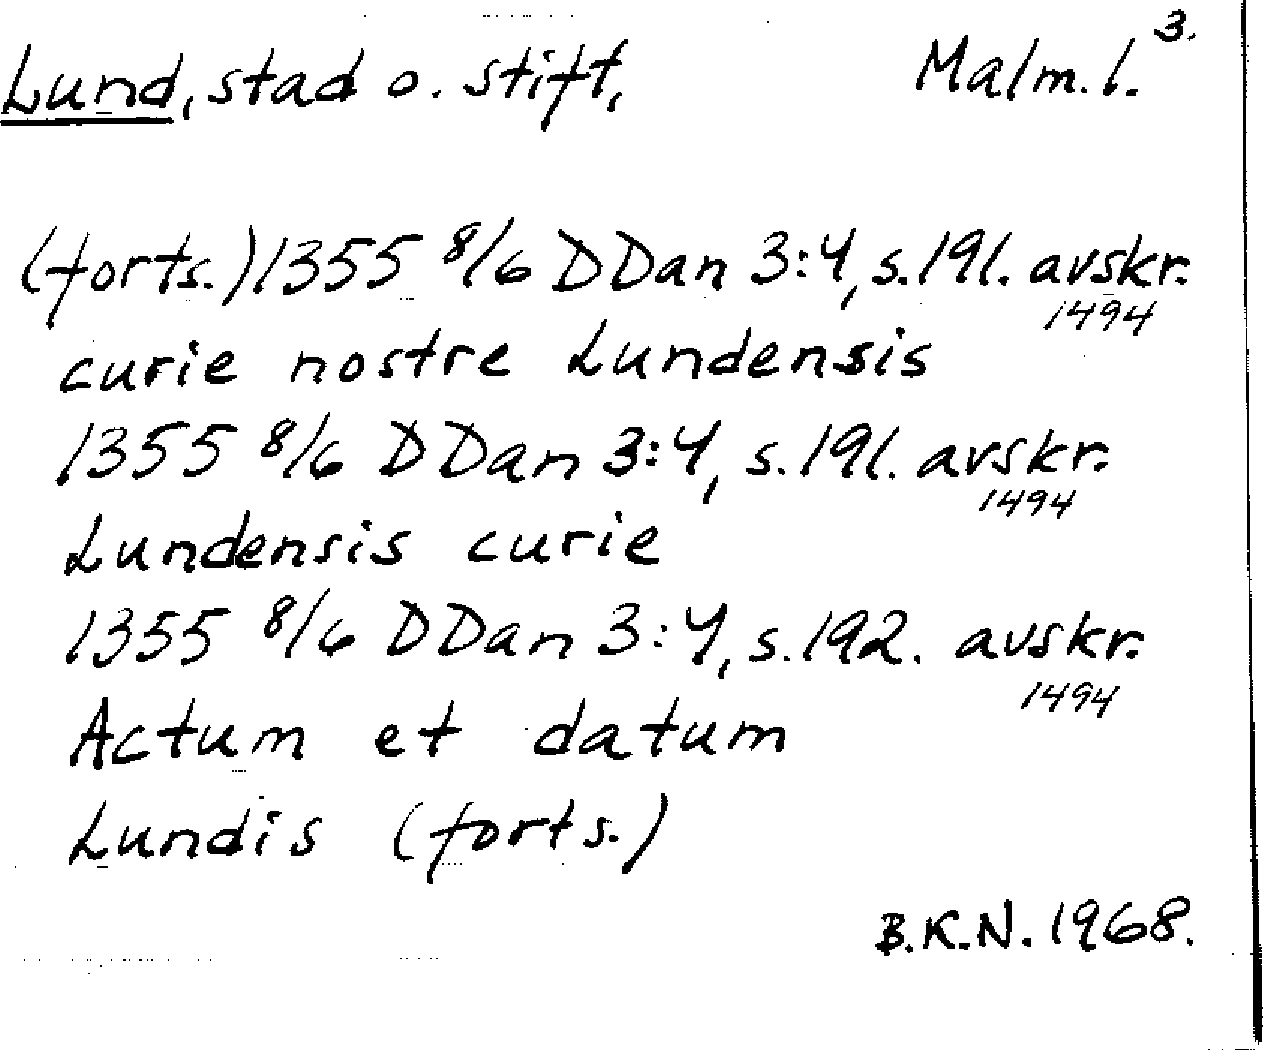 Lund, stad o. stift, Malm. l. 3.
(forts.) 1355 8/6 DDan 3:4, s. 191. avskr. 1494
curie nostre Lundensis
1355 8/6 DDan 3:4, s. 191. avskr. 1494
Lundensis curie
1355 8/6 DDan 3:4, s. 192. avskr. 1494
Actum et datum
Lundis (forts.)
B.K.N. 1968.